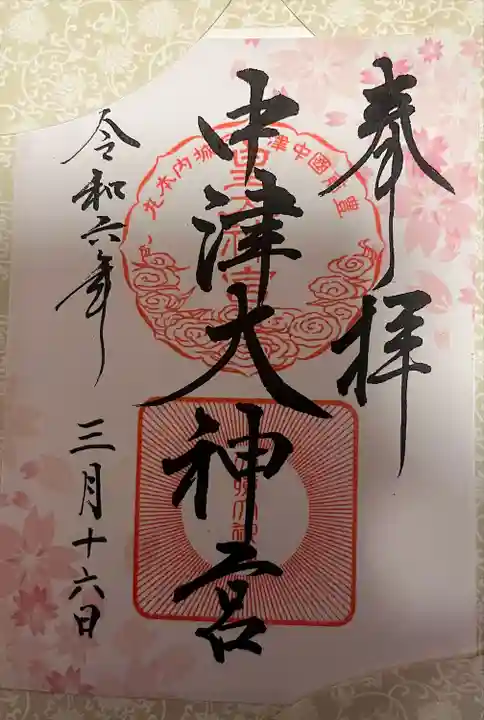 奉拝
中津大神宮
令和六年
三月十六日
豊前國中津城内本丸